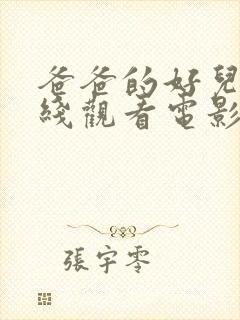 爸爸的好兒
綫觀看電影
張宇零